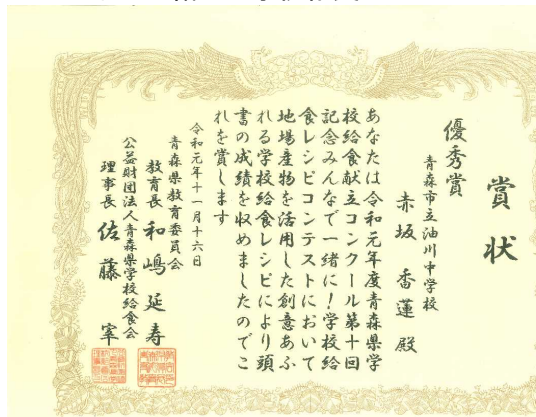 賞状
優秀賞
青森市立油川中学校
赤坂香蓮殿
あなたは令和元年度青森県学
校給食献立コンクール第十回
記念みんなで一緒に!学校給
食レシピコンテストにおいて
地場産物を活用した創意あふ
れる学校給食レシピにより頭
書の成績を収めましたのでこ
れを賞します
令和元年十一月十六日
青森県教育委員会
教育長 和嶋延寿
公益財団法人青森県学校給食会
理事長 佐藤宰